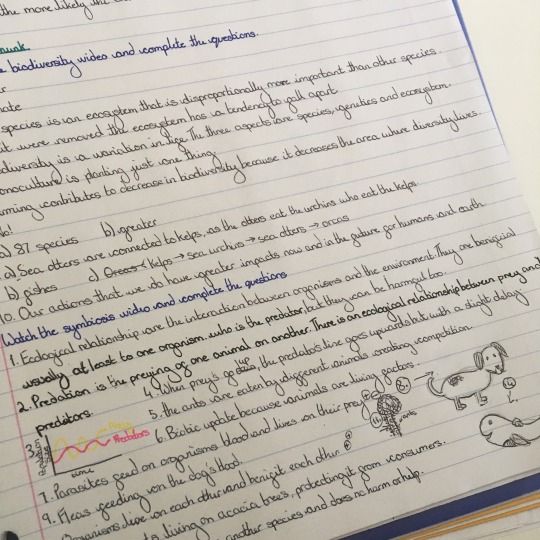 the more likely the
biodiversity video and complete the questions.
species is an ecosystem that is disproportionally more important than other species.
it were removed the ecosystem has a tendency to fall apart.
diversity is a variation in life. The three aspects are species, genetics and ecosystem.
monoculture is planting just one thing.
contributes to decrease in biodiversity because it decreases the area where diversity lives.
a) 87 species b) greater
a) Sea otters are connected to kelps, as the otters eat the urchins who eat the kelps.
b) fishes c) Orcas kelps → sea urchins → sea otters → orcas
10. Our actions that we do have greater impacts now and in the future for humans and earth.
Watch the symbiosis video and complete the questions
1. Ecological relationship are the interaction between organisms and the environment. They are beneficial
usually at least to one organism who is the predator, but they can be harmful too.
2. Predation is the preying of one animal on another. There is an ecological relationship between prey and
predators.
3. Predators time
4. When prey's go up, the predator's line goes upwards but with a slight delay.
5. the ants are eaten by different animals creating competition.
6. Biotic update because animals are living factors.
ants
7. Parasites feed on organisms blood and lives on their prey
9. Fleas feeding on the dog's blood.
Organisms live on each other and benefit each other
living on acacia trees, protecting it from consumers.
another species and does no harm or help.